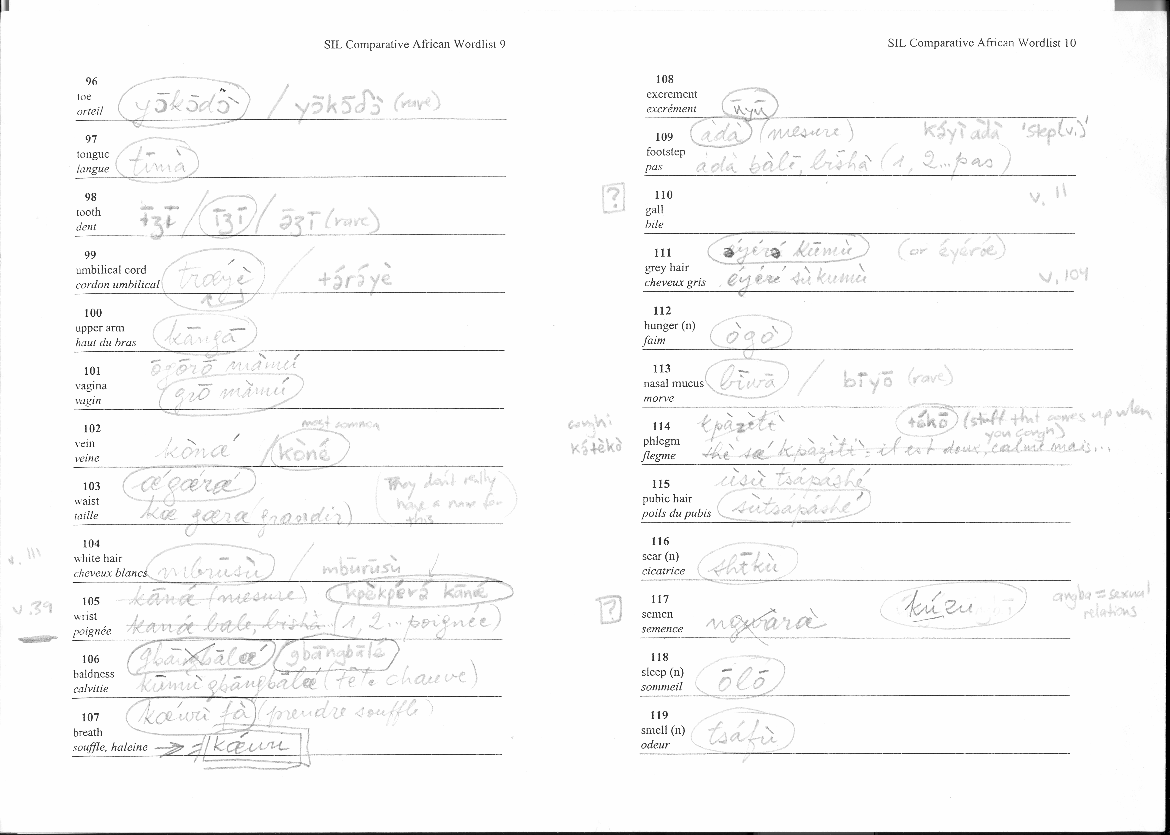 SIL Comparative African Wordlist 9
96
toe
orteil
yɔ̄kɔ̄dɔ̃̀ / yɔ̄kɔ̄ɗɔ̀ (rare)
97
tongue
langue
tīmà
98
tooth
dent
ɨ̄ʒɨ̄ / īʒī / ə̄ʒī (rare)
99
umbilical cord
cordon umbilical
/ tə́rə́yè
100
upper arm
haut du bras
kāngā
101
vagina
vagin
ōgōrō màmú
grō màmú
102
vein
veine
most common
kɔ̀nœ́ / kɔ̀né
103
waist
taille
œ́gœ́rœ́
kœ gœra grandir)
They don't really
have a name for
this
104
white hair
cheveux blancs
mbrūsù / mbūrūsù
v. 111
105
wrist
poignée
kānœ (mesure) kpèkpérá kānœ́
kanœ bale, bīshà (1, 2... poignée)
v. 39
106
baldness
calvitie
gbāngbālœ́ gbāngbālé
kūmù gbāngbālœ́ (tête chauve)
107
breath
souffle, haleine
kœ́wū fà (prendre souffle)
kœ́wū
SIL Comparative African Wordlist 10
108
excrement
excrément
nyū
109
footstep
pas
àdà (mesure) káyì àdà 'step (v.)'
àdà bàlē, bīshà (1, 2...pas)
?
110
gall
bile
v. 11
111
grey hair
cheveux gris
éyéré kūmù (or éyérœ́)
éyéré sù kumù
v. 104
112
hunger (n)
faim
ògò
113
nasal mucus
morve
bīwā / bīyō (rare)
114
phlegm
flegme
cough:
kpàzètè tékō (stuff that comes up when
you cough)
thé sœ kpàzítì : il est doux, calme mais...
115
pubic hair
poils du pubis
ùsù tsápáshé
sùtsápáshé
116
scar (n)
cicatrice
shɨ̄kù
?
117
semen
semence
kúzu
angba = sexual
relations
118
sleep (n)
sommeil
ōlō
119
smell (n)
odeur
tsáfù